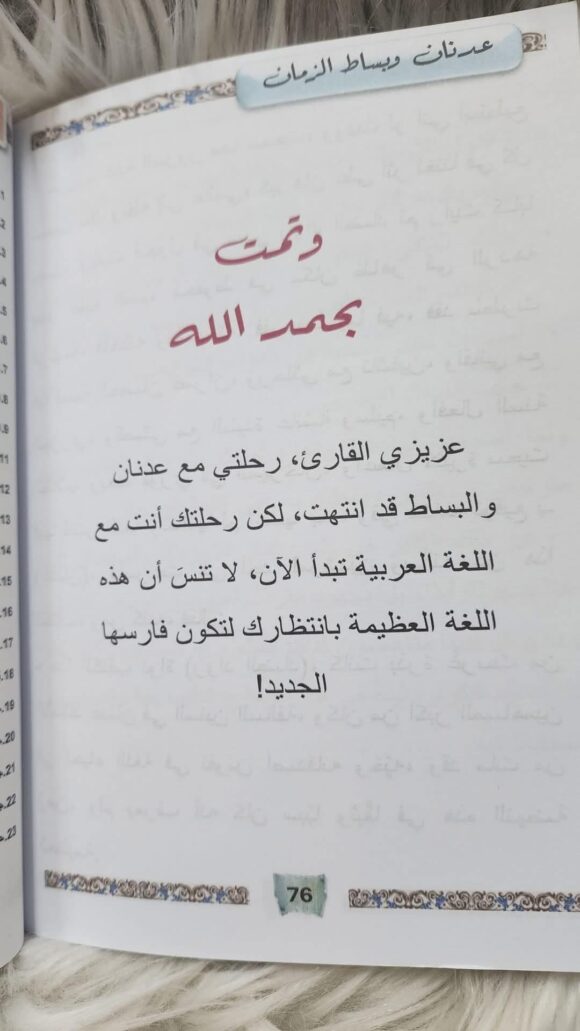 عدنان وبساط الزمان
وتمت
بحمد الله
عزيزي القارئ، رحلتي مع عدنان
والبساط قد انتهت، لكن رحلتك أنت مع
اللغة العربية تبدأ الآن، لا تنسَ أن هذه
اللغة العظيمة بانتظارك لتكون فارسها
الجديد!
76
1
2
3
4
5
6
7
8
9
11
12
13
14
15
16
17
18
19
20
21
22
23